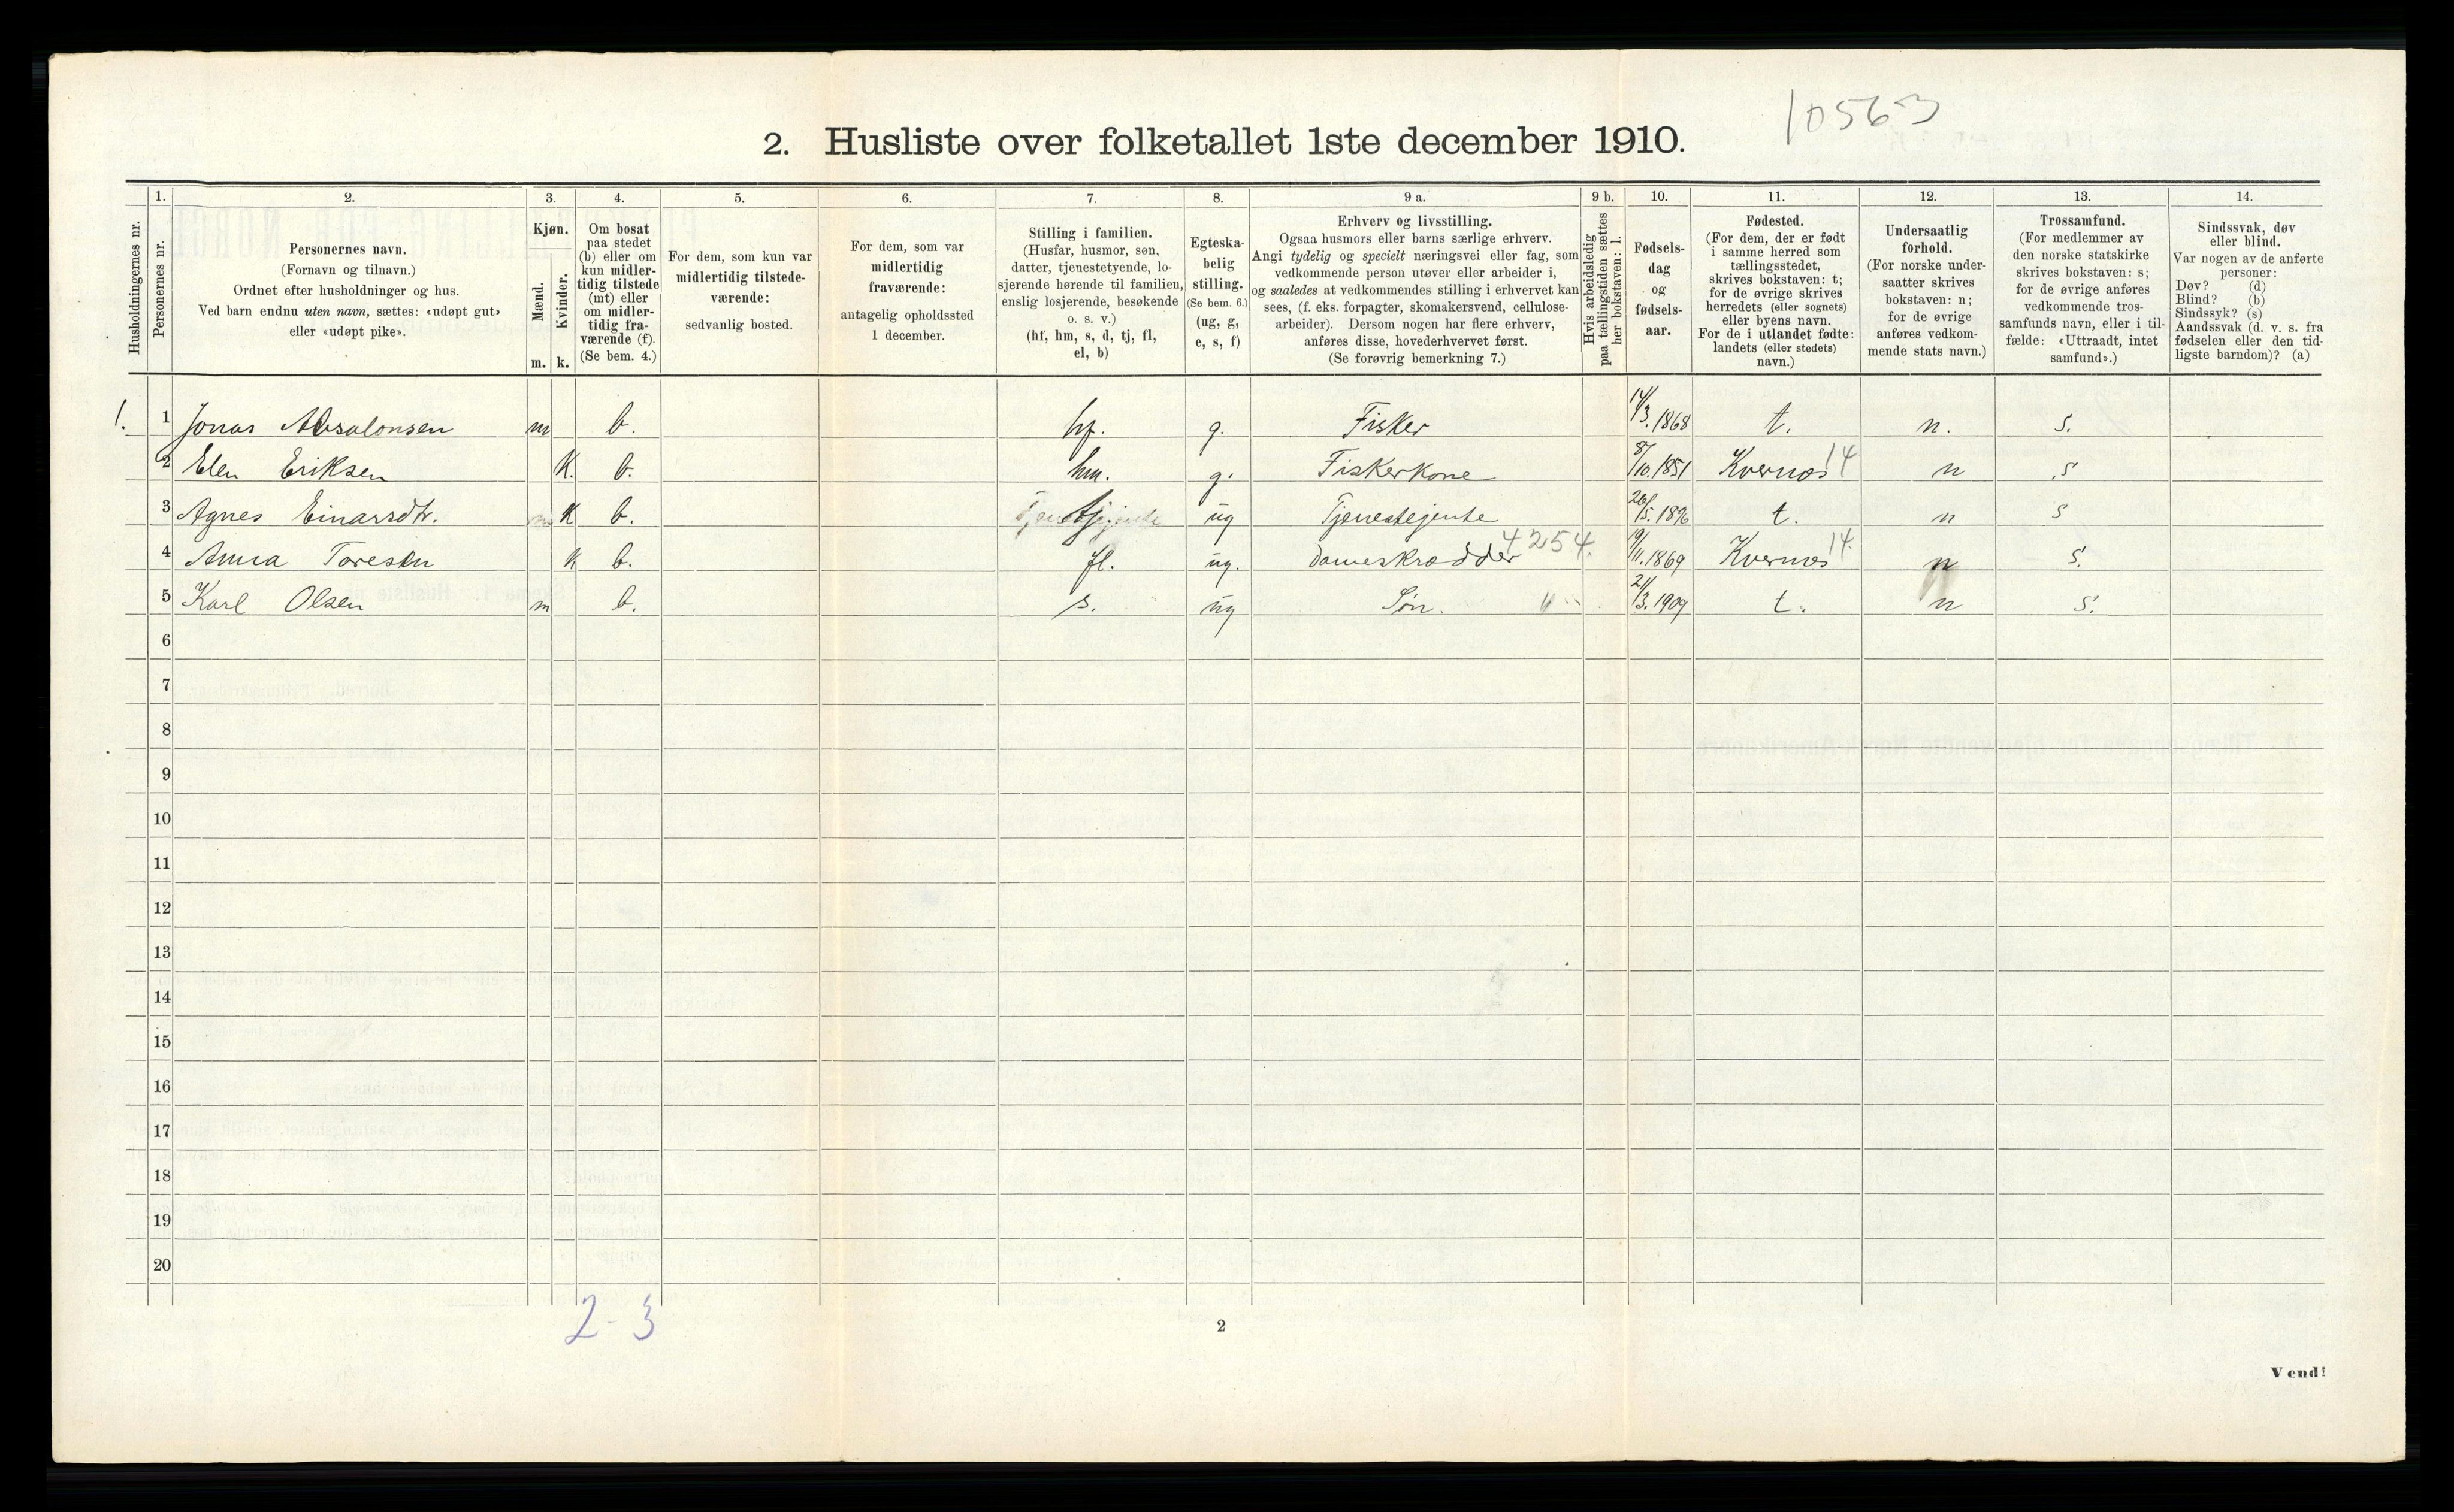 10563
2. Husliste over folketallet 1ste december 1910.
Husholdningernes nr.
1.
Personernes nr.
2.
Personernes navn.
(Fornavn og tilnavn.)
Ordnet efter husholdninger og hus.
Ved barn endnu uten navn, sættes: «udøpt gut»
eller «udøpt pike».
3.
Kjøn.
Mænd.
Kvinder.
m. k.
4.
Om bosat
paa stedet
(b) eller om
kun midler-
tidig tilstede
(mt) eller
om midler-
tidig fra-
værende (f).
(Se bem. 4.)
5.
For dem, som kun var
midlertidig tilstede-
værende:
sedvanlig bosted.
6.
For dem, som var
midlertidig
fraværende:
antagelig opholdssted
1 december.
7.
Stilling i familien.
(Husfar, husmor, søn,
datter, tjenestetyende, lo-
sjerende hørende til familien,
enslig losjerende, besøkende
o. s. v.)
(hf, hm, s, d, tj, fl,
el, b)
8.
Egteska-
belig
stilling.
(Se bem. 6.)
(ug, g,
e, s, f)
9 a.
Erhverv og livsstilling.
Ogsaa husmors eller barns særlige erhverv.
Angi tydelig og specielt næringsvei eller fag, som
vedkommende person utøver eller arbeider i,
og saaledes at vedkommendes stilling i erhvervet kan
sees, (f. eks. forpagter, skomakersvend, cellulose-
arbeider). Dersom nogen har flere erhverv,
anføres disse, hovederhvervet først.
(Se forøvrig bemerkning 7.)
9 b.
Hvis arbeidsledig
paa tællingstiden sættes
her bokstaven: l.
10.
Fødsels-
dag
og
fødsels-
aar.
11.
Fødested.
(For dem, der er født
i samme herred som
tællingsstedet,
skrives bokstaven: t;
for de øvrige skrives
herredets (eller sognets)
eller byens navn.
For de i utlandet fødte:
landets (eller stedets)
navn.)
12.
Undersaatlig
forhold.
(For norske under-
saatter skrives
bokstaven: n;
for de øvrige
anføres vedkom-
mende stats navn.)
13.
Trossamfund.
(For medlemmer av
den norske statskirke
skrives bokstaven: s;
for de øvrige anføres
vedkommende tros-
samfunds navn, eller i til-
fælde: «Uttraadt, intet
samfund».)
14.
Sindssvak, døv
eller blind.
Var nogen av de anførte
personer:
Døv? (d)
Blind? (b)
Sindssyk? (s)
Aandssvak (d. v. s. fra
fødselen eller den tid-
ligste barndom)? (a)
1. 1 Jonas Absalonsen m b. hf. g. Fisker 14/3.1868 t. n. s.
2 Elen Eriksen K. b. hm. g. Fiskerkone 8/10.1851 Kvernes 14 n s
3 Agnes Einarsdtr. K b. tj. ug Tjenestejente 26/5.1896 t. n s
4 Anna Toresen k b. fl. ug. Dameskrædder 4254. 19/11.1869 Kvernes 14. n s.
5 Karl Olsen m b. s. ug Søn. 21/3.1909 t. n s.
6
7
8
9
10
11
12
13
14
15
16
17
18
19
20
2-3
2
Vend!